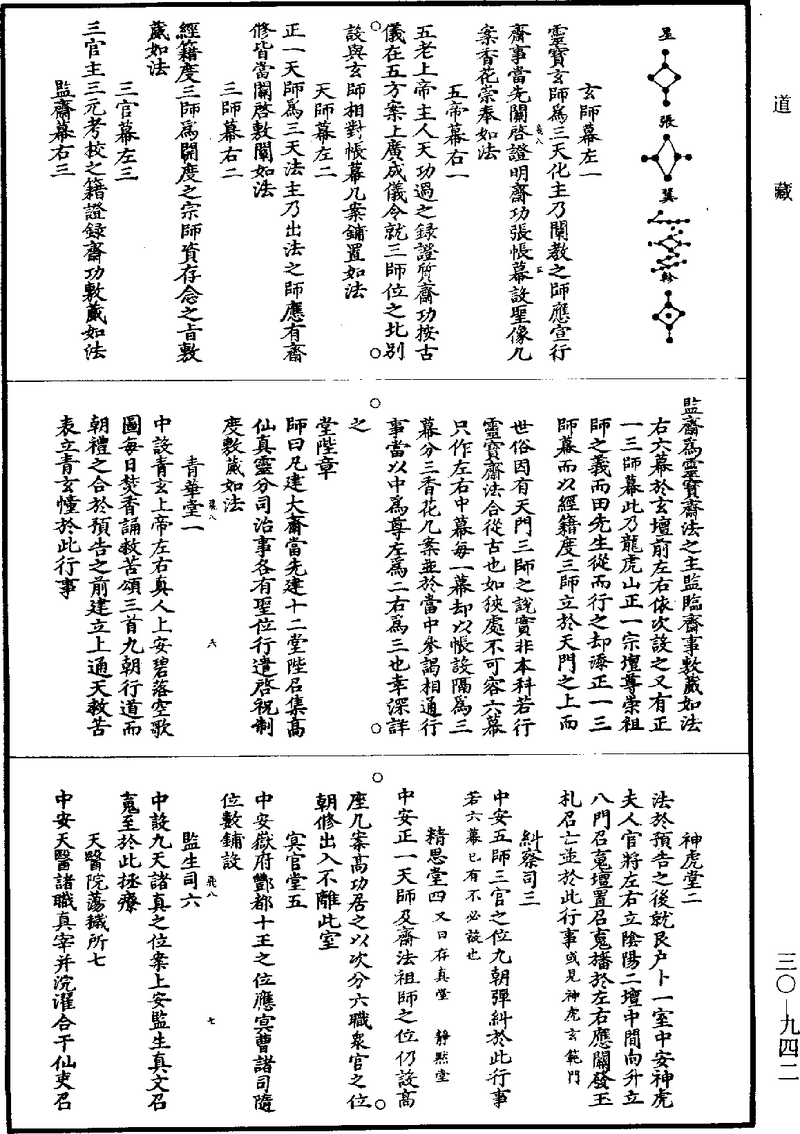 道藏
星
張
翼
軫
玄師幕左一
靈寶玄師為三天化主乃闡教之師應宣行
齋事當先關啓證明齋功張帳幕設聖像几
案香花崇奉如法
五帝幕右一
五老上帝主人天功過之録證質齋功按古
儀在五方案上廣成儀令就三師位之北別
設與玄師相對帳幕几案鋪置如法
天師幕左二
正一天師為三天法主乃出法之師應有齋
修皆當關啓敷闡如法
三師幕右二
經籍度三師為開度之宗師資存念之旨敷
葳如法
三官幕左三
三官主三元考校之籍證録齋功敷葳如法
監齋幕右三
監齋為靈寶齋法之主監臨齋事敷葳如法
右六幕於玄壇前左右依次設之又有正
一三師幕此乃龍虎山正一宗壇尊崇祖
師之義而田先生從而行之却添正一三
師幕而以經籍度三師立於天門之上而
世俗因有天門三師之說實非本科若行
靈寶齋法合從古也如狹處不可容六幕
只作左右中幕每一幕却以帳設隔為三
幕分三香花几案並於當中參謁相通行
事當以中為尊左為二右為三也幸深詳
之
堂陛章
師曰凡建大齋當先建十二堂陛召集高
仙真靈分司治事各有聖位行遣啓祝制
度敷葳如法
青華堂一
中設青玄上帝左右真人上安碧落空歌
圖每日焚香誦救苦頌三首九朝行道而
朝禮之合於預告之前建立上通天救苦
表立青玄幢於此行事
神虎堂二
法於預告之後就艮户卜一室中安神虎
夫人官將左右立陰陽二壇中間向升立
八門召䰟壇置召䰟旛於左右應關發玉
札召亡並於此行事或見神虎玄範門
糾察司三
中安五師三官之位九朝彈糾於此行事
若六幕已有不必設也
精思堂四又曰存真堂 靜默堂
中安正一天師及齋法祖師之位仍設高
座几案高功居之以次分六職衆官之位
朝修出入不離此室
冥官堂五
中安嶽府酆都十王之位應冥曹諸司隨
位數鋪設
監生司六
中設九天諸真之位案上安監生真文召
䰟至於此拯療
天醫院蕩穢所七
中安天醫諸職真宰并浣濯合干仙吏召
三〇—九四二